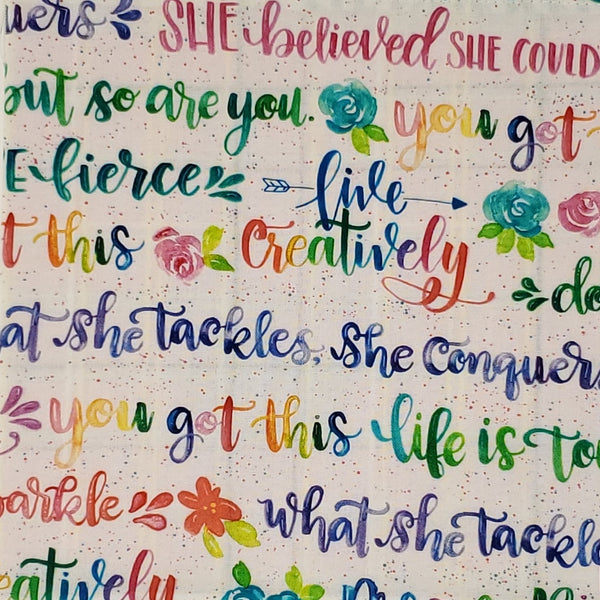 uers SHE believed SHE COULD
but so are you. you got t
E fierce live
t this Creatively do
at she tackles, she Conquers
you got this life is tou
parkle what she tackle
eatively